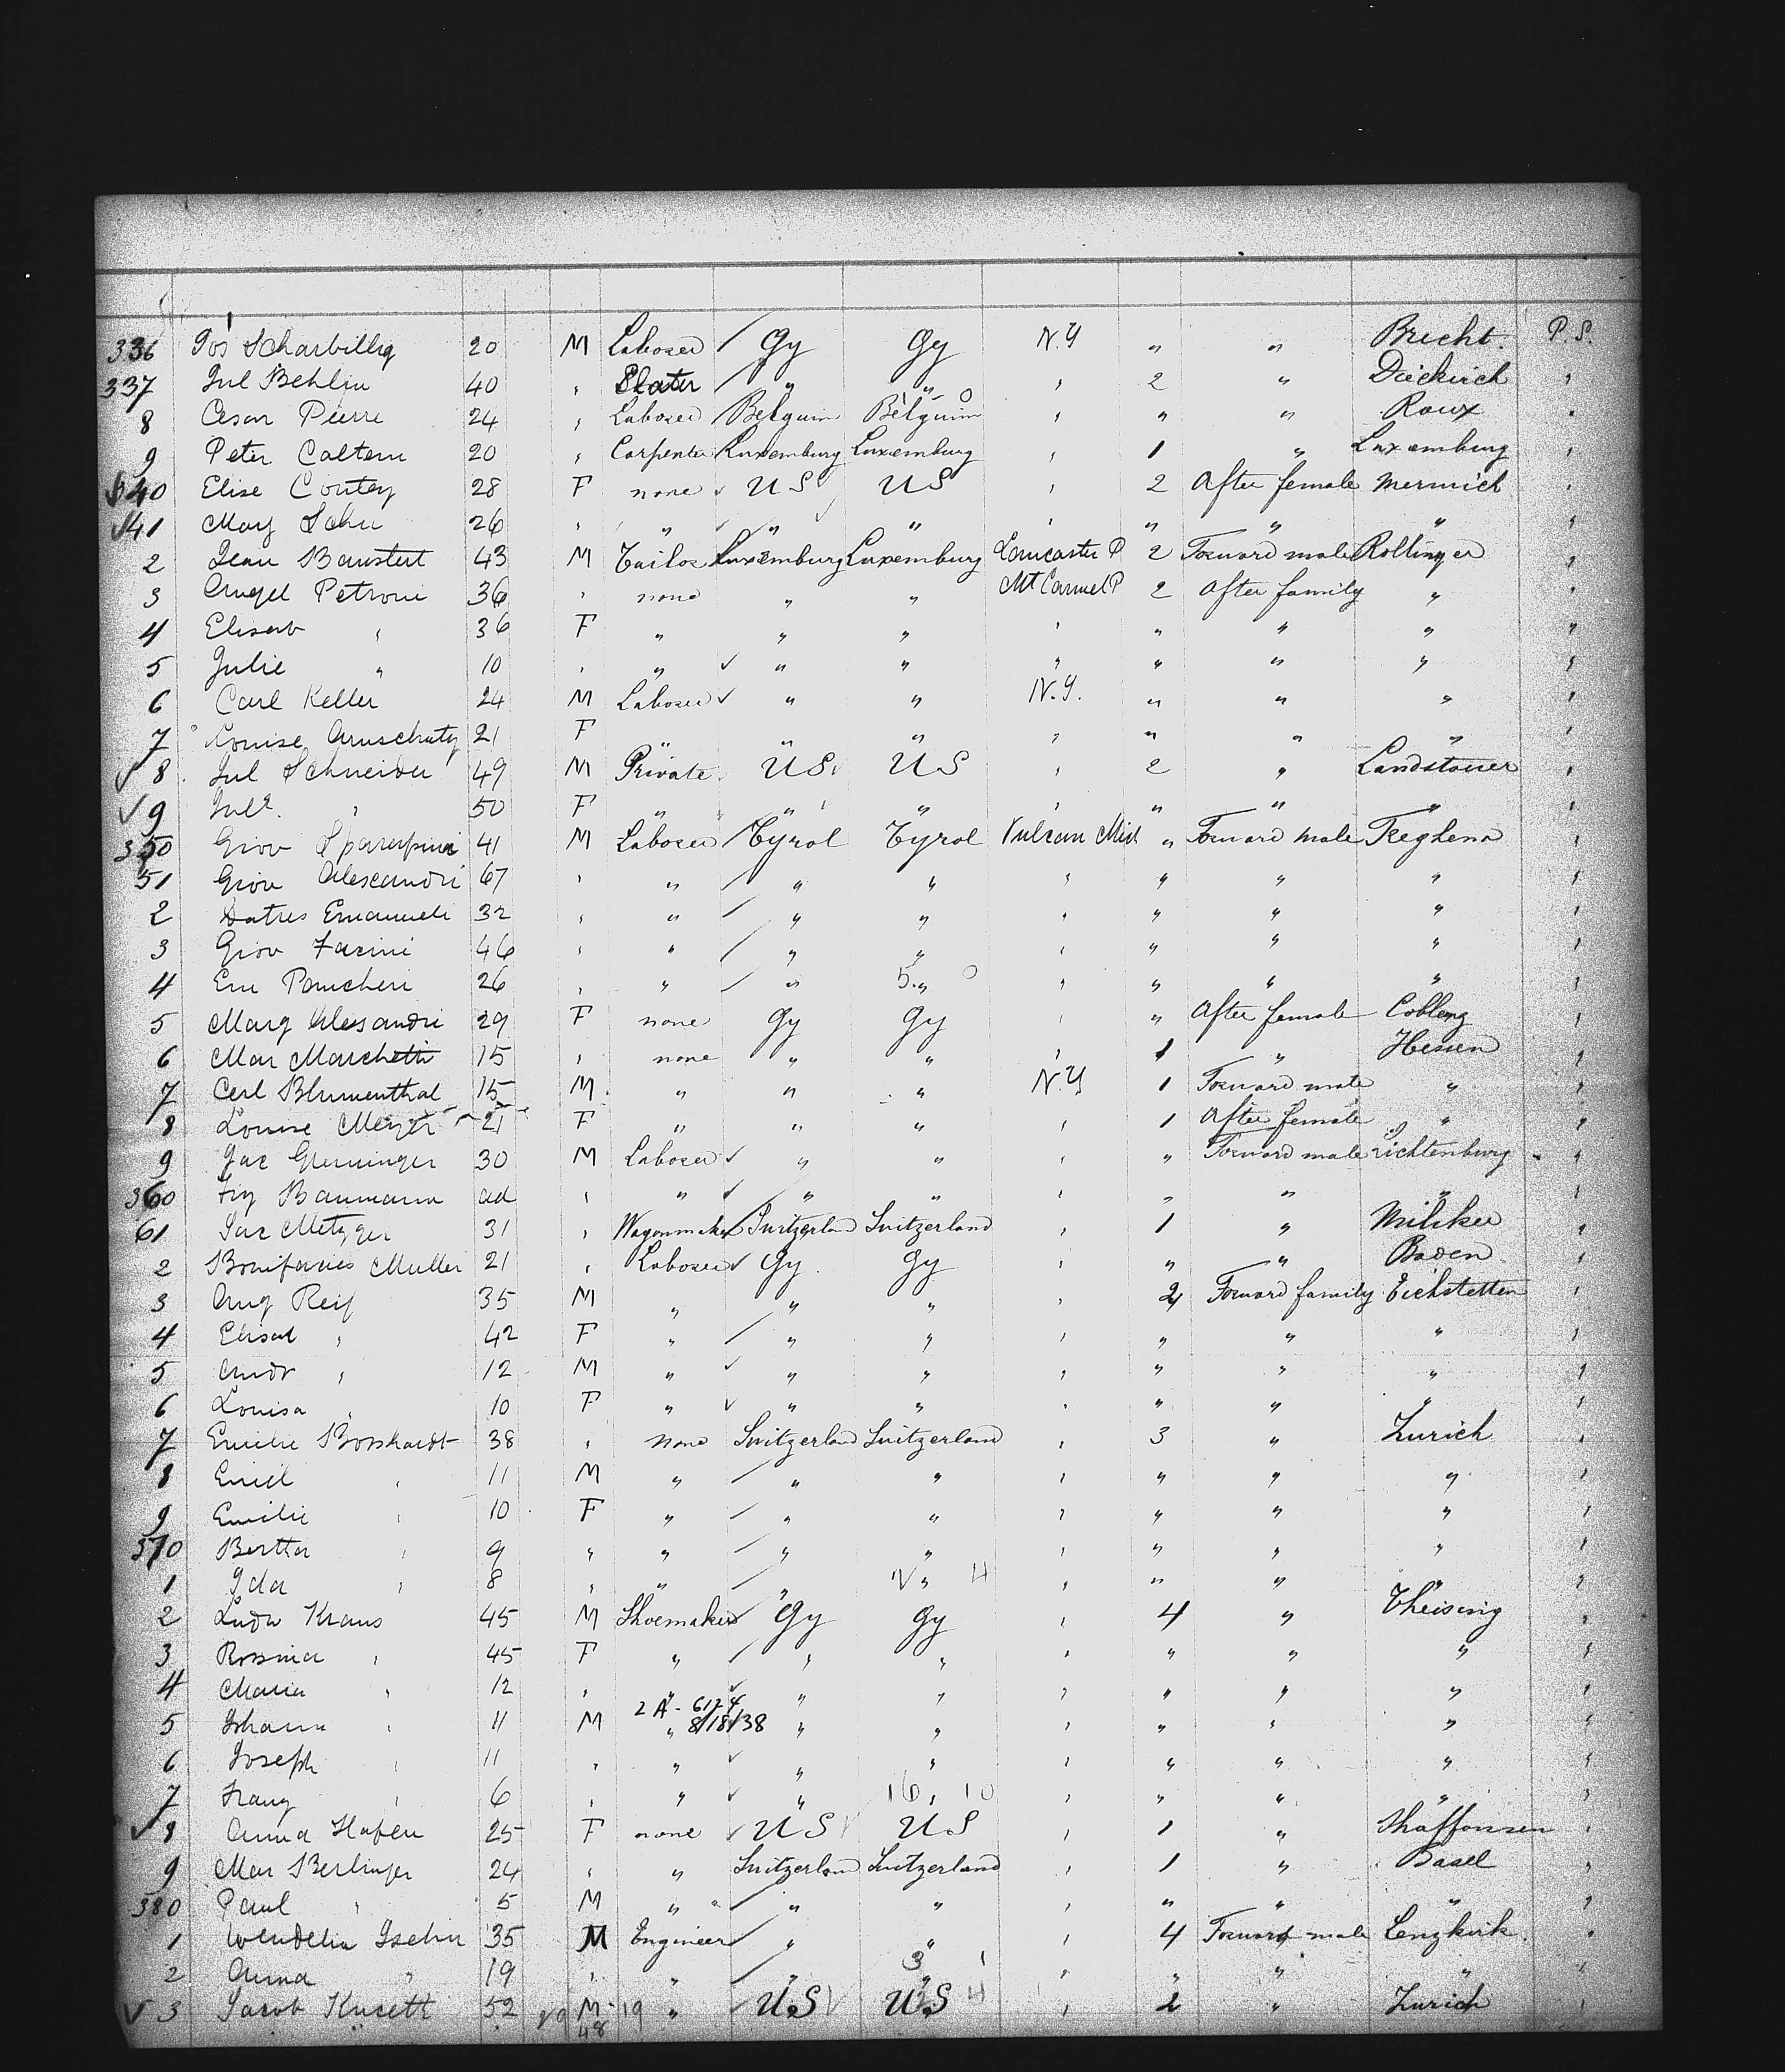 336 Jos Scharbillig 20 M Laborer / Gy Gy N.Y " " Brecht. P.S.
337 Jul Behlin 40 " Slater / " " " 2 " Diekirch "
8 Cesar Pierre 24 " Laborer Belgium Belgium " " " Roux "
9 Peter 20 " Carpenter Luxemburg Luxemburg " 1 " Luxemburg "
340 Elise 28 F none ✓ US US " 2 After female Mermich "
✓41 Mary 26 " " ✓ " " " " " " "
2 Jean Baustert 43 M Tailor Luxemburg Luxemburg Lancaster P 2 Forward male Rollinger "
3 Angel Petroni 36 " none " " Mt Carmel P 2 After family " "
4 Elisab " 36 F " " " " " " " "
5 Julie " 10 " " ✓ " " " " " " "
6 Carl Keller 24 M Laborer ✓ " " N.Y. " " " "
7 Louise 21 F " " " " " " " "
✓ 8 Jul Schneider 49 M Private US US " 2 " "
✓ 9 " 50 F " " " " " " " "
350 Giov 41 M Laborer / Tyrol Tyrol Vulcan Mich " Forward male Treghena "
51 Giov Alescandri 67 " " / " " " " " " "
2 Emanuele 32 " " / " " " " " " "
3 Giov Farini 46 " " / " " " " " " "
4 Em Pancheri 26 " " / " 5 " 0 " " " " "
5 Marg Alesandri 29 F none Gy Gy " " After female Coblenz "
6 Mar Marchetti 15 " none " " " 1 " Hessen "
7 Carl Blumenthal 15 M " " " N.Y 1 Forward male " "
8 Louise Meyer 21 F " " " " 1 After female " "
9 Jac Grenninger 30 M Laborer ✓ " " " " Forward male Lichtenburg "
360 Baumann ad " " ✓ " " " " " " "
61 Jac Metzger 31 " Wagonmaker Switzerland Switzerland " 1 " "
2 Bonifacius Muller 21 " Laborer ✓ Gy Gy " " " Baden "
3 Aug Reif 35 M " " " " 4 Forward family Eichstetten "
4 Elisab " 42 F " / " " " " " " "
5 Andr " 12 M " ✓ " " " " " " "
6 Louisa " 10 F " ✓ " " " " " " "
7 Emilie Bosshardt 38 " none Switzerland Switzerland " 3 " Zurich "
8 Emil " 11 M " / " " " " " " "
9 Emilie " 10 F " / " " " " " " "
370 Bertha " 9 " " / " " " " " " "
1 Ida " 8 " " / " " 4 " " " " "
2 Ludw Kraus 45 M Shoemaker ✓ Gy Gy " 4 " Theising "
3 Rossina " 45 F " / " " " " " " "
4 Maria " 12 " " ✓ " " " " " " "
2 A - 6174
5 Johann " 11 M " 8/18/38 " " " " " " "
6 Joseph " 11 " " ✓ " " " " " " "
7 Franz " 6 " " ✓ " 16 " 10 " " " " "
✓ 8 Anna Hafen 25 F none ✓ US US " 1 " Shaffonsen "
9 Mar Berlinger 24 " " Switzerland Switzerland " 1 " Basel "
380 Paul " 5 M " / " " " " " " "
1 Wendelin Iselin 35 M Engineer / " " " 4 Forward male Lenzkirk. "
2 Anna " 19 " " / " 3 " 1 " " " " "
✓ 3 Jacob 52 M 19 " ✓ US US 4 " 2 " Zurich "
48